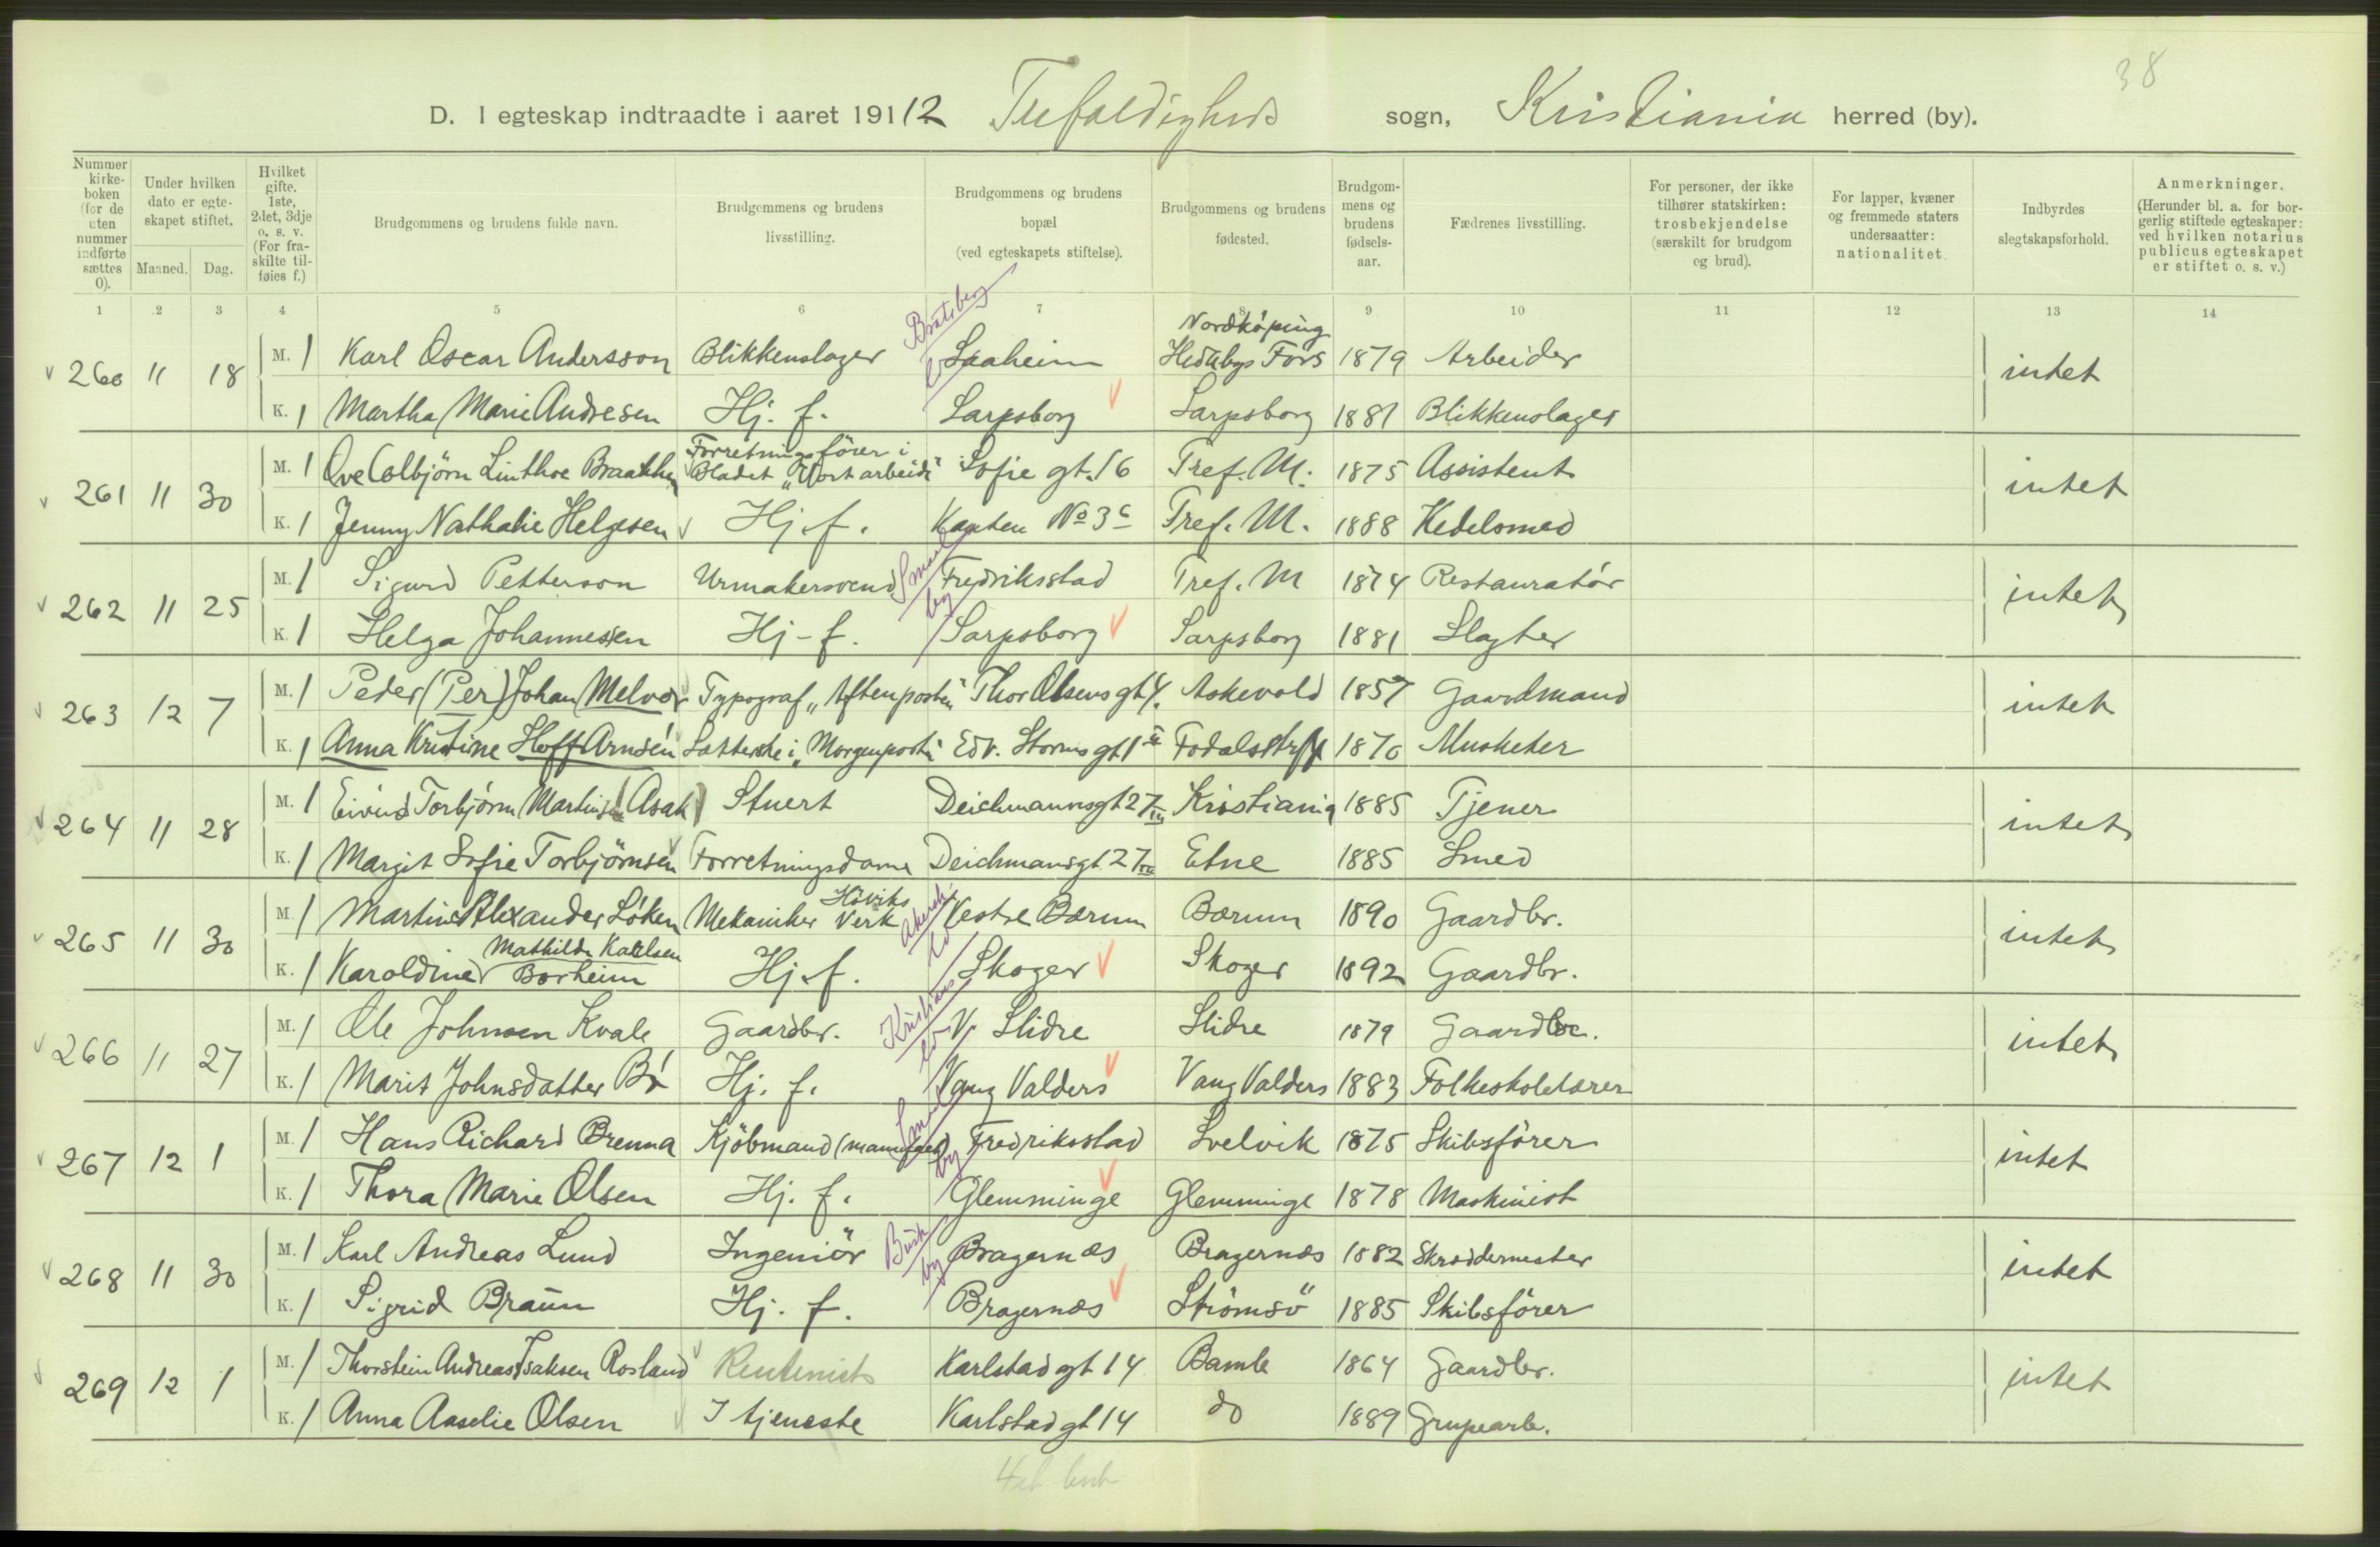 38
D. I egteskap indtraadte i aaret 191 12 Trefoldigheds sogn, Kristiania herred (by).
Nummer kirke-boken (for de uten nummer indførte sættes 0).
Under hvilken dato er egte-skapet stiftet.
Maaned. Dag.
Hvilket gifte. 1ste, 2det, 3dje o. s. v. (For fra-skilte til-føies f.)
Brudgommens og brudens fulde navn.
Brudgommens og brudens livsstilling.
Brudgommens og brudens bopæl (ved egteskapets stiftelse).
Brudgommens og brudens fødested.
Brudgom-mens og brudens fødsels-aar.
Fædrenes livsstilling.
For personer, der ikke tilhører statskirken: trosbekjendelse (særskilt for brudgom og brud).
For lapper, kvæner og fremmede staters undersaatter: nationalitet.
Indbyrdes slegtskapsforhold.
Anmerkninger. (Herunder bl. a. for bor-gerlig stiftede egteskaper: ved hvilken notarius publicus egteskapet er stiftet o. s. v.)
1 2 3 4 5 6 7 8 9 10 11 12 13 14
260 11 18 M. 1 Karl Oscar Andersson Blikkenslager Bratsberg Saaheim Nordköping Fors 1879 Arbeider intet
K. 1 Martha Marie Andresen Hj. f. Sarpsborg Sarpsborg 1881 Blikkenslager
261 11 30 M. 1 Ove Colbjörn Linthoe Braathen Forretningsförer i Bladet „Vort arbeide" Sofie gt. 16 Tref. M. 1875 Assistent intet
K. 1 Jenny Nathalie Helgesen Hj. f. Kanten No 3c Tref. M. 1888 Kedelsmed
262 11 25 M. 1 Sigurd Petterson Urmakersvend Smaal by Fredriksstad Tref. M 1874 Restauratör intet
K. 1 Helga Johannessen Hj-f. Sarpsborg Sarpsborg 1881 Slagter
263 12 7 M. 1 Peder (Per) Johan Melvær Typograf „Aftenposten" Thor Olsens gt 4. Askevold 1857 Gaardmand intet
K. 1 Anna Kristine Hoff Arnsén Sætterske i „Morgenposten" Edv. Storms gt 1 1870 Musketer
264 11 28 M. 1 Eivind Torbjörn Martinsen (Asak) Stuert Deichmannsgt 27 III Kristiania 1885 Tjener intet
K. 1 Margit Sofie Torbjörnsen Forretningsdame Deichmansgt 27 III Etne 1885 Smed
265 11 30 M. 1 Martin Alexander Löken Mekaniker Höviks Verk Akersh. ld Vestre Bærum Bærum 1890 Gaardbr. intet
K. 1 Karoldine Mathilde Karlsen Borheim Hj. f. Skoger Skoger 1892 Gaardbr.
266 11 27 M. 1 Ole Johnsen Kvale Gaardbr. Kristians ld V. Slidre Slidre 1879 Gaardbr. intet
K. 1 Marit Johnsdatter Bö Hj. f. Vang Valders Vang Valders 1883 Folkeskolelærer
267 12 1 M. 1 Hans Richard Brenna Kjöbmand (manufact) Smaal by Fredriksstad Svelvik 1875 Skibsförer intet
K. 1 Thora Marie Olsen Hj. f. Glemminge Glemminge 1878 Maskinist
268 11 30 M. 1 Karl Andreas Lund Ingeniör Busk by Bragernæs Bragernæs 1882 Skræddermester intet
K. 1 Sigrid Braun Hj. f. Bragernæs Strömsö 1885 Skibsförer
269 12 1 M. 1 Thorstein Andreas Isaksen Rosland Rentenist Karlstad gt 14 Bamle 1864 Gaardbr. intet
K. 1 Anna Aaselie Olsen I tjeneste Karlstad gt 14 do 1889 Grupearb.